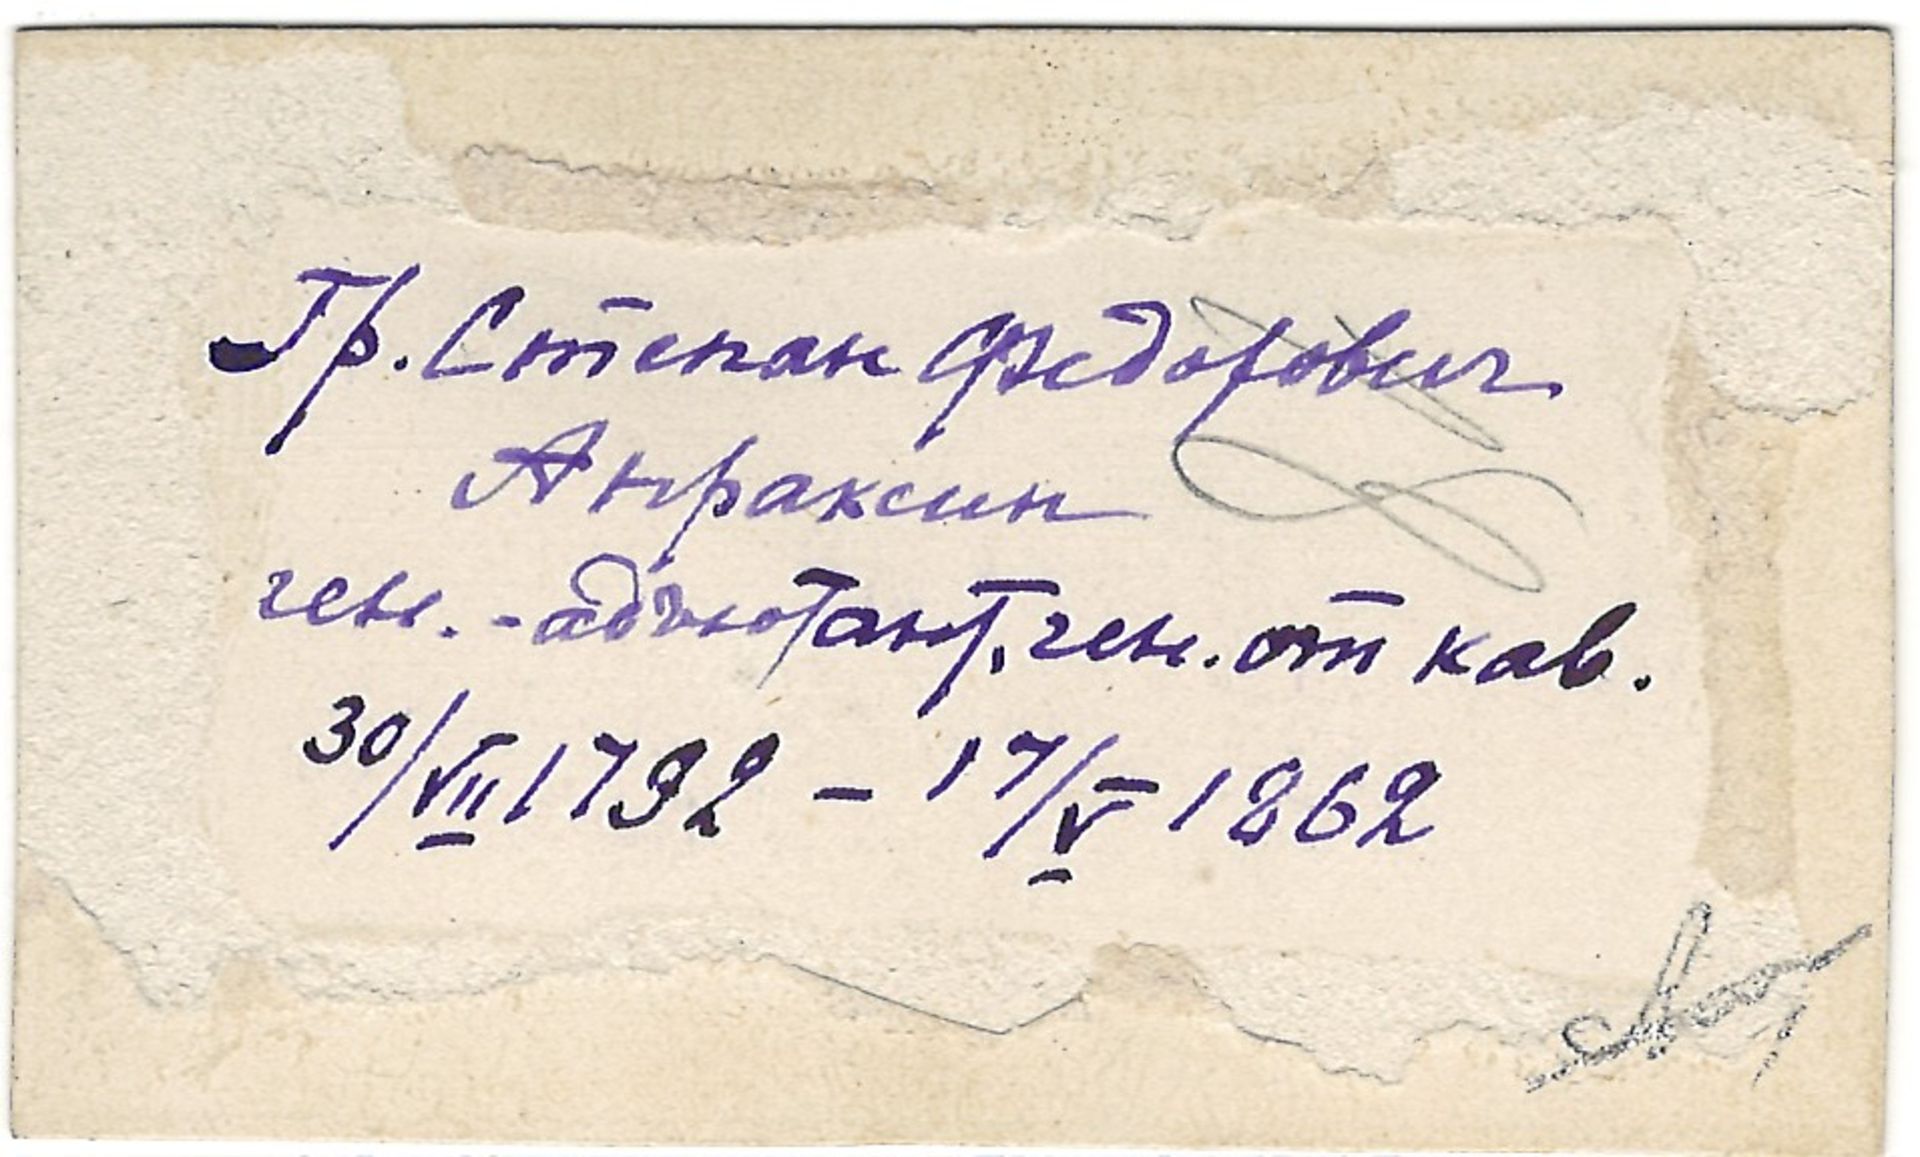 Гр. Степан Федорович
Апраксин
ген.-адъютант, ген. от кав.
30/VII 1792 – 17/V 1862